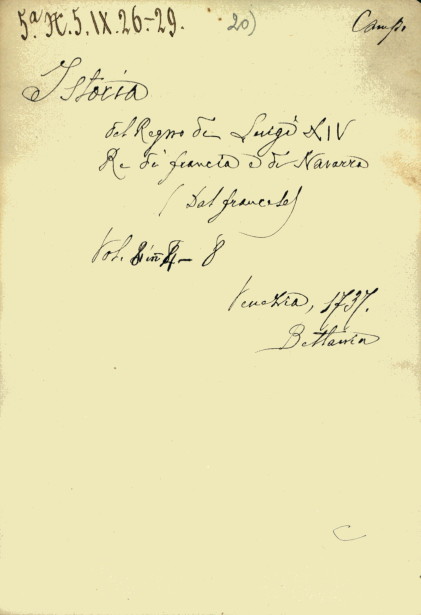 5ª H. 5. IX. 26-29. 20) Camp.
Istoria
del Regno di Luigi XIV
Re di francia e di Navarra
(Dal francese)
Vol. in 4 - 8
Venezia, 1737.
C